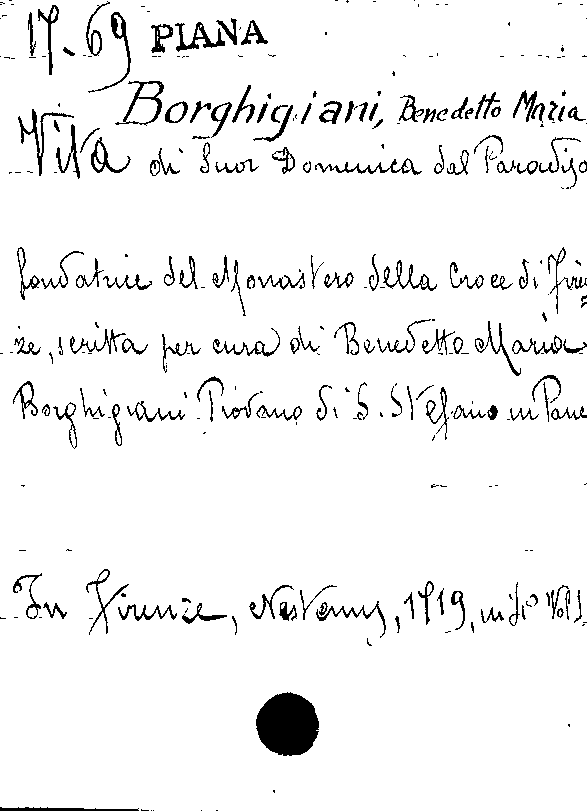 17-69 PIANA
Borghigiani, Benedetto Maria
Vita di Suor Domenica dal Paradiso
fondatrice del Monastero della Croce di Firen=
ze, scritta per cura di Benedetto Maria
Borghigiani Piovano di S. Stefano in Pane
In Firenze, Nestenus, 1719, in f° Vol 1